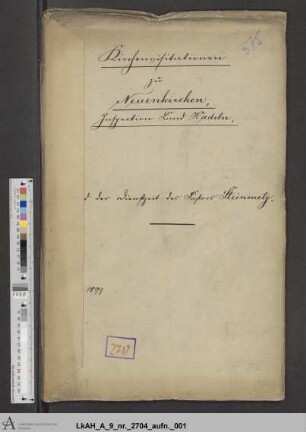 575
Kirchenvisitationen
zu
Neuenkirchen,
Inspection Land Hadeln,
d. der Dienstzeit des Pastors Steinmetz.
1899
2704
LkAH_A_9_nr._2704_aufn._001